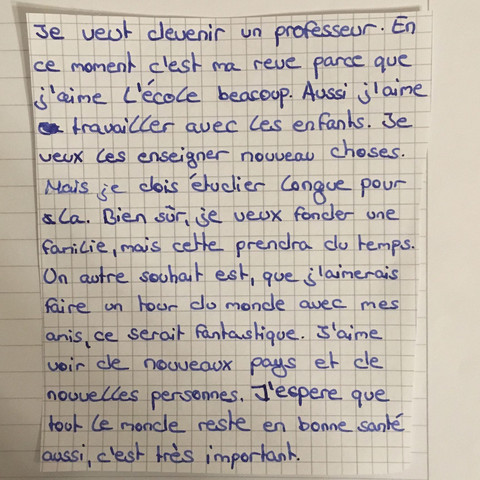 Je veut devenir un professeur. En
ce moment c'est ma reve parce que
j'aime l'école beascoup. Aussi j'aime
travailler avec les enfants. Je
veux les enseigner nouveau choses.
Mais je dois étudier longue pour
la. Bien sûr, je veux fonder une
familie, mais cette prendra du temps.
Un autre souhait est, que j'aimerais
faire un tour du monde avec mes
amis, ce serait fantastique. J'aime
voir de nouveaux pays et de
nouvelles personnes. J'espere que
tout le monde reste en bonne santé
aussi, c'est très important.